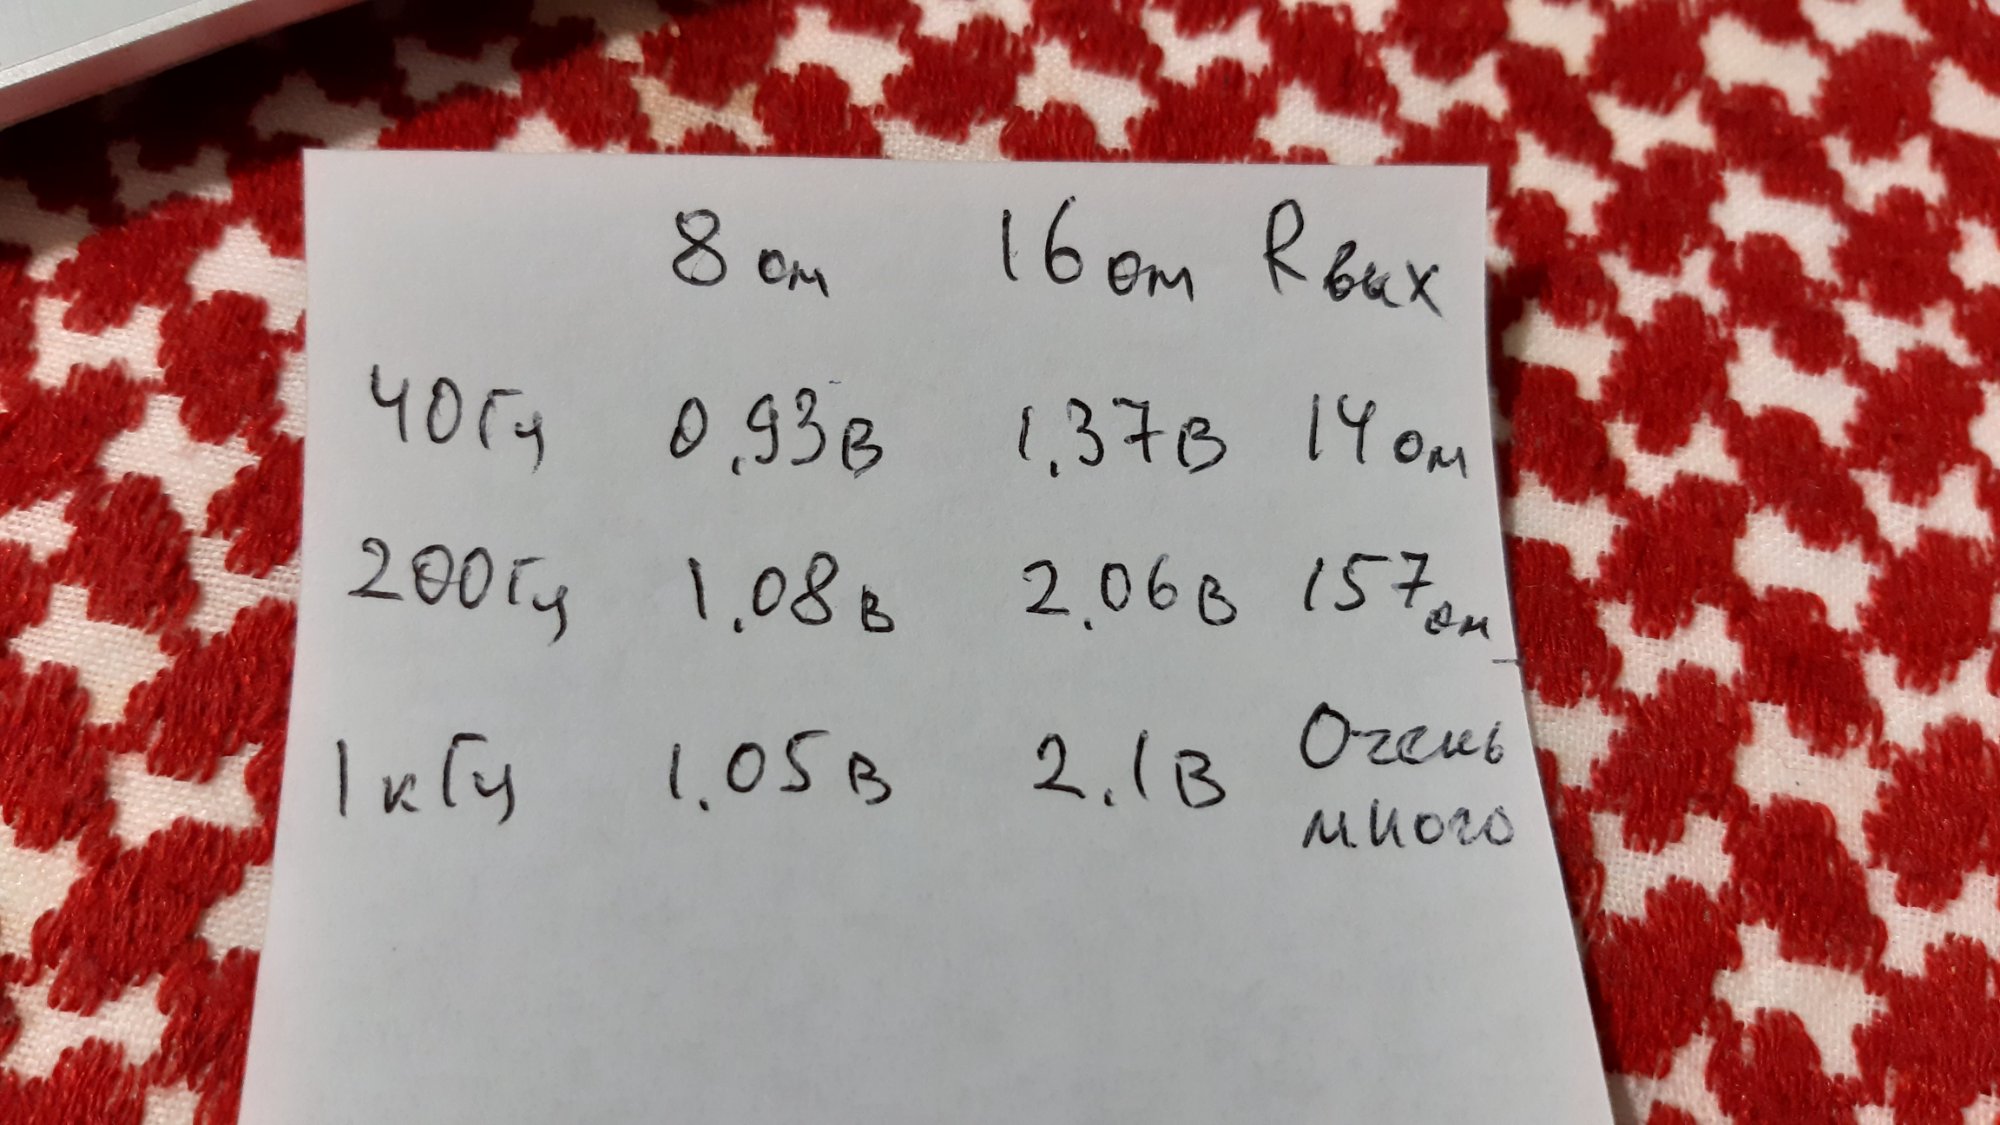 8 ом 16 ом Rвых
40Гц 0.93в 1.37в 14 ом
200Гц 1.08в 2.06в 157 ом
1кГц 1.05в 2.1в Очень много